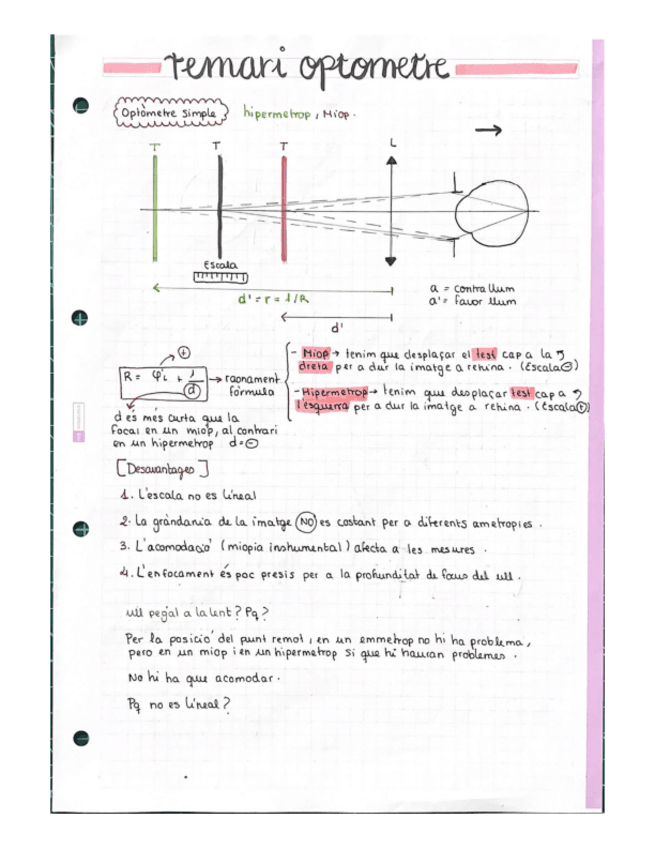 temari optometre
Optòmetre simple hipermetrop, Miop.
T T T L
Escala
d' = r = 1/R
d'
a = contra llum
a' = favor llum
R = φL + 1/d
+
→ raonament
fórmula
d és més curta que la
focal en un miop, al contrari
en un hipermetrop d = ⊖
- Miop → tenim que desplaçar el test cap a la
dreta per a dur la imatge a retina. (Escala ⊖)
- Hipermetrop → tenim que desplaçar test cap a
l'esquerra per a dur la imatge a retina. (Escala ⊕)
[Desavantages]
1. L'escala no es líneal
2. La gràndaria de la imatge NO es costant per a diferents ametropies.
3. L'acomodació (miopia instrumental) afecta a les mesures.
4. L'enfocament és poc presis per a la profunditat de focus del ull.
ull pegat a la lent? Pq?
Per la posició del punt remot, en un emmetrop no hi ha problema,
pero en un miop i en un hipermetrop si que hi hauran problemes.
No hi ha que acomodar.
Pq no es líneal?